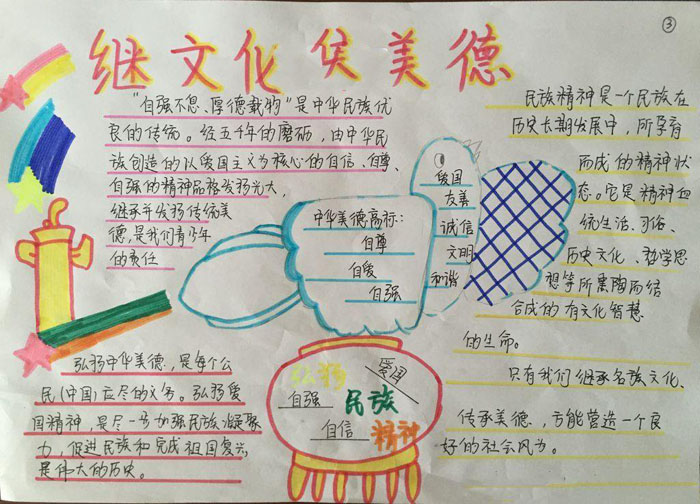 继文化 侯美德
③
"自强不息、厚德载物"是中华民族优
良的传统。经五千年的磨砺，由中华民
族创造的以爱国主义为核心的自信、自尊、
自强的精神品格发扬光大，
继承并发扬传统美
德，是我们青少年
的责任
弘扬中华美德，是每个公
民(中国)应尽的义务。弘扬爱
国精神，是尽一步加强民族凝聚
力，促进民族和完成祖国复兴，
是伟大的历史。
中华美德高标：
自尊
自爱
自强
爱国
友善
诚信
文明
和谐
弘扬
爱国
自强
民族
自信
精神
民族精神是一个民族在
历史长期发展中，所孕育
而成的精神状
态。它是精神血
统生活、习俗、
历史文化、哲学思
想等所熏陶而结
合成的有文化智慧
的生命。
只有我们继承名族文化、
传承美德，方能营造一个良
好的社会风力。